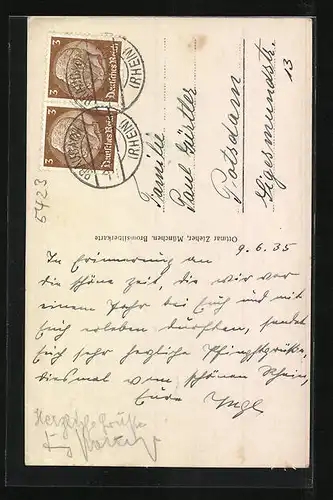 3
Deutsches Reich
3
Deutsches Reich
(RHEIN)
(RHEIN)
Familie
Paul Gürtler
Potsdam
Sigesmundstr.
13
5423
Ottmar Zieher, München. Bromsilberkarte
9.6.35
In Erinnerung an
die schöne Zeit, die wir vor
einem Jahr bei Euch und mit
Euch erleben durften, sendet
Euch sehr herzliche Pfingstgrüße,
diesmal vom schönen Rhein,
Eure
Herzliche Grüße